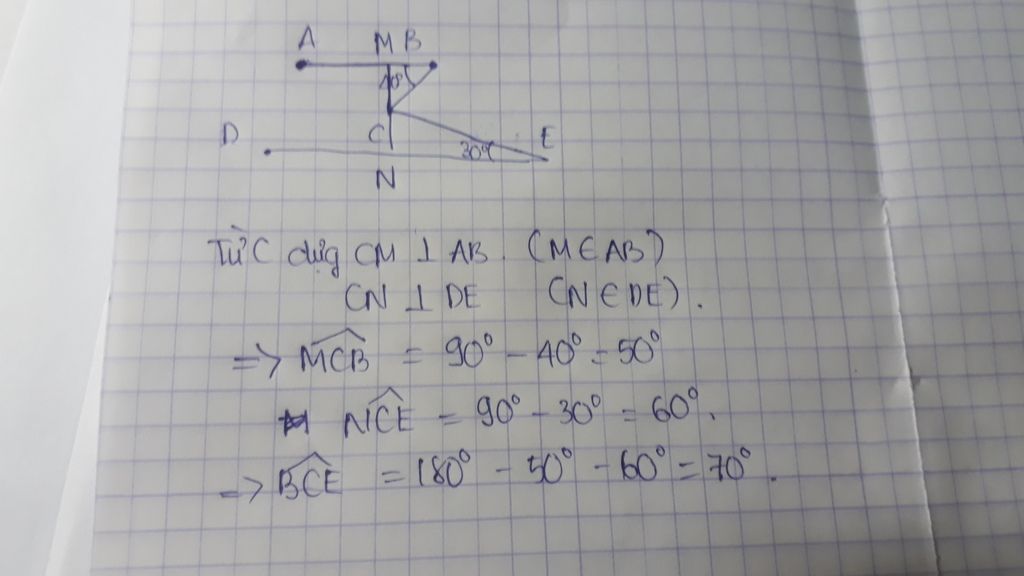 A M B
40°
D C E
30°
N
Từ C dựg CM ⊥ AB. (M ∈ AB)
CN ⊥ DE (N ∈ DE).
=> \widehat{MCB} = 90° - 40° = 50°
\widehat{NCE} = 90° - 30° = 60°.
=> \widehat{BCE} = 180° - 50° - 60° = 70°.